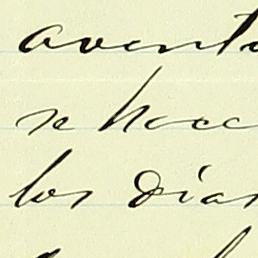 aventu
se hace
los días